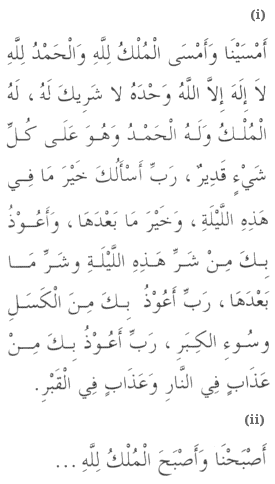 (i)
أَمْسَيْنَا وَأَمْسَى الْمُلْكُ لِلَّهِ وَالْحَمْدُ لِلَّهِ
لاَ إِلَهَ إِلاَّ اللَّهُ وَحْدَهُ لا شَرِيكَ لَهُ ، لَهُ
الْمُلْكُ وَلَهُ الْحَمْدُ وَهُوَ عَلَى كُلِّ
شَيْءٍ قَدِيرٌ ، رَبِّ أَسْأَلُكَ خَيْرَ مَا فِي
هَذِهِ اللَّيْلَةِ ، وَخَيْرَ مَا بَعْدَهَا ، وَأَعُوْذُ
بِكَ مِنْ شَرِّ هَذِهِ اللَّيْلَةِ وشَرِّ مَا
بَعْدَهَا ، رَبِّ أَعُوْذُ بِكَ مِنَ الْكَسَلِ
وسُوءِ الكِبَرِ ، رَبِّ أَعُوْذُ بِكَ مِنْ
عَذَابٍ فِي النَّارِ وَعَذَابٍ فِي الْقَبْرِ.
(ii)
أَصْبَحْنَا وَأَصْبَحَ الْمُلْكُ لِلَّهِ ...